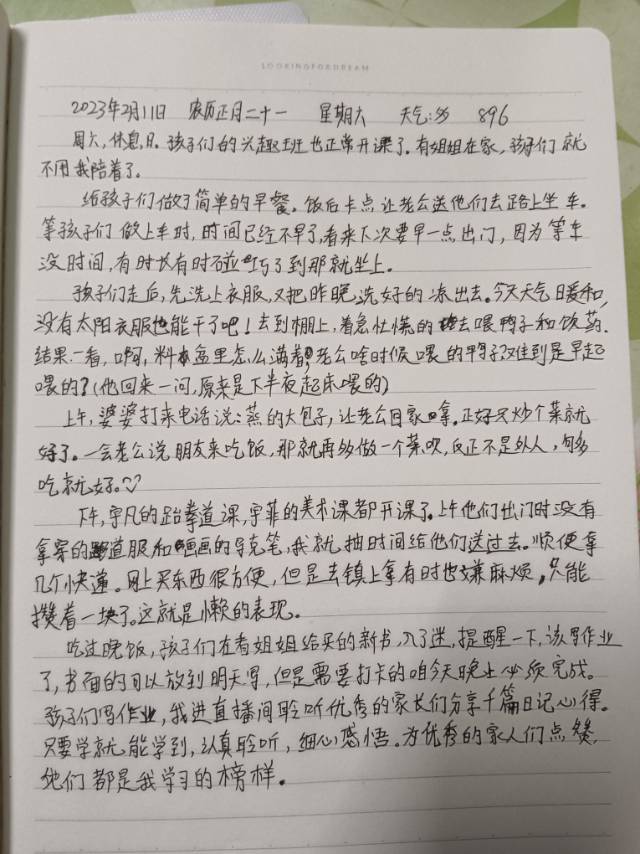 LOOKINGFORDREAM
2023年2月11日 农历正月二十一 星期六 天气:多 896
周六,休息日。孩子们的兴趣班也正常开课了。有姐姐在家,孩子们就
不用我陪着了。
给孩子们做了简单的早餐。饭后卡点让老公送他们去路上坐车。
等孩子们做上车时,时间已经不早了,看来下次要早一点出门,因为等车
没时间,有时长有时碰巧了到那就坐上。
孩子们走后,先洗上衣服,又把昨晚洗好的凉出去。今天天气暖和,
没有太阳衣服也能干了吧!去到棚上,着急忙慌的去喂鸭子和饮药。
结果一看,啊,料盒里怎么满着,老公啥时候喂的鸭子?难到是早起
喂的?(他回来一问,原来是下半夜起来喂的)
上午,婆婆打来电话说:蒸的大包子,让老公回家拿。正好只炒个菜就
好了。一会老公说朋友来吃饭,那就再多做一个菜呗,反正不是外人,够多
吃就好。
下午,宇凡的跆拳道课,宇菲的美术课都开课了。上午他们出门时没有
拿穿的道服和画画的马克笔,我就抽时间给他们送过去。顺便拿
几个快递。网上买东西很方便,但是去镇上拿有时也嫌麻烦,只能
攒着一块了。这就是懒的表现。
吃过晚饭,孩子们在看姐姐给买的新书,入了迷,提醒一下,该写作业
了,书面的可以放到明天写,但是需要打卡的咱今天晚上必须完成。
孩子们写作业,我进直播间聆听优秀的家长们分享千篇日记心得。
只要学就能学到,认真聆听,细心感悟。为优秀的家人们点赞,
他们都是我学习的榜样。